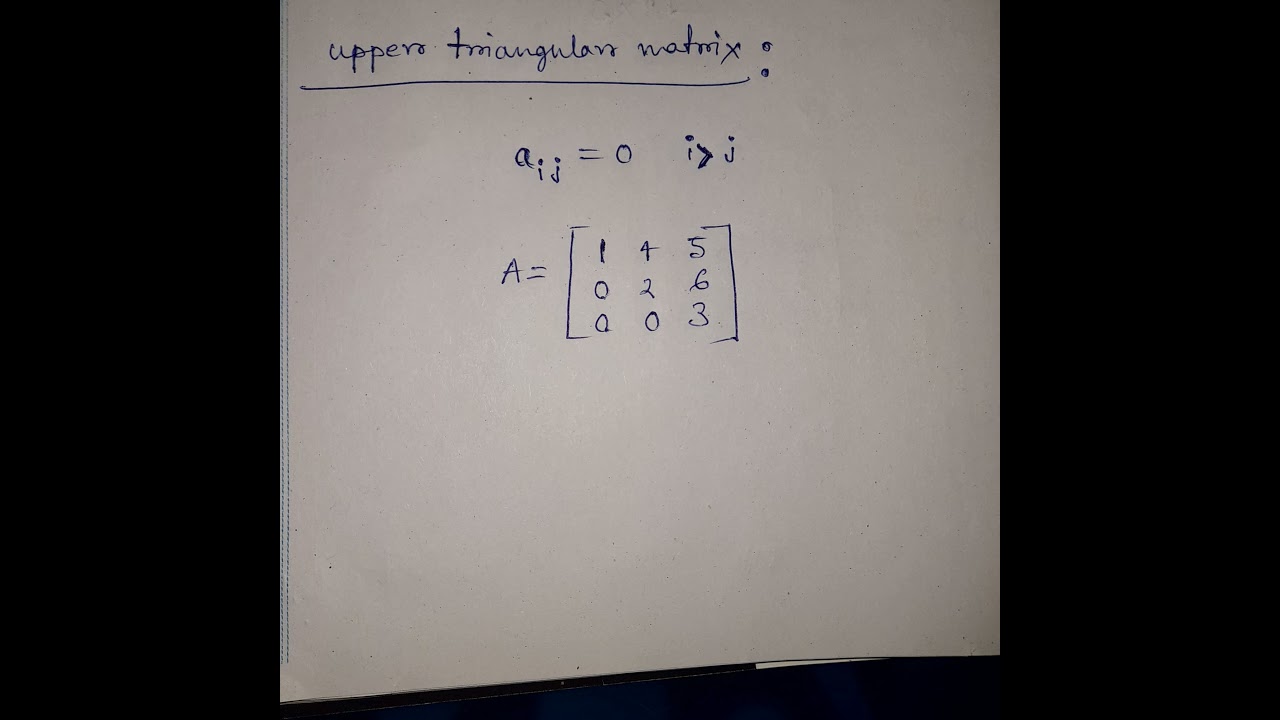 upper triangular matrix :
aij = 0 i > j
A = [ 1 4 5
0 2 6
0 0 3 ]